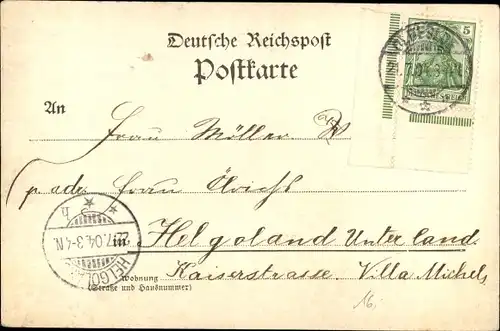 Deutsche Reichspost
Postkarte
5
An
Frau Möller
p. adr. Frau
in Helgoland Unterland.
Kaiserstrasse. Villa Michels
Wohnung
(Straße und Hausnummer)
22.7.04. 3-4 N.
HELGOLAND
16.